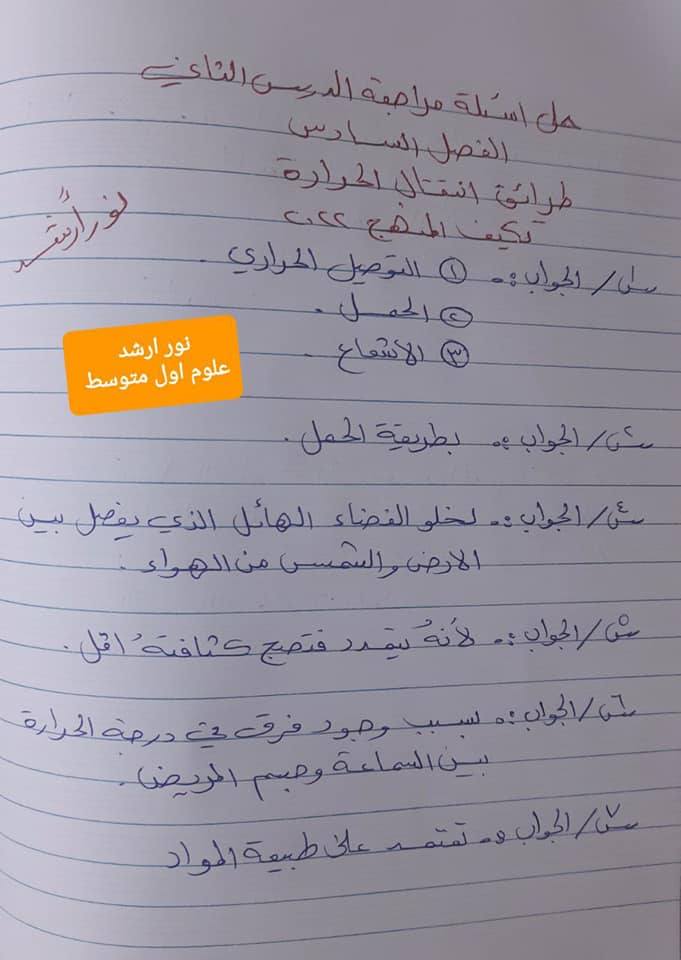 حل اسئلة مراجعة الدرس الثاني
الفصل السادس
طرائق انتقال الحرارة
تكيف المنهج ٢٠٢٢
نور أرشد
س١/ الجواب:. ① التوصيل الحراري.
② الحمل.
③ الاشعاع.
نور ارشد
علوم اول متوسط
س٢/ الجواب:. بطريقة الحمل.
س٤/ الجواب:. لخلو الفضاء الهائل الذي يفصل بين
الارض والشمس من الهواء.
س٥/ الجواب:. لأنهُ يتمدد فتصبح كثافتهُ اقل.
س٦/ الجواب:. بسبب وجود فرق في درجة الحرارة
بين السماعة وجسم المريض.
س٧/ الجواب:. تعتمد على طبيعة المواد